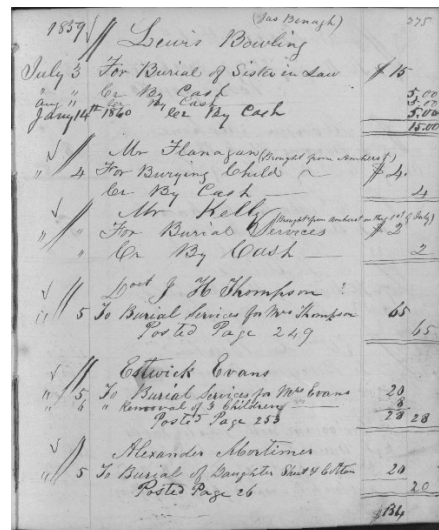 (Jas Benagh) 275
1859 Lewis Bowling
July 3 For Burial of Sister in Law $15
" " Cr By Cash 5.00
Aug " Cr By Cash 5.00
Jany 14th 1860 Cr By Cash 5.00
15.00
Mr Flanagan (Brought from Amherst)
" 4 For Burying Child $4.
Cr By Cash 4
Mr Kelly (Brought from Amherst on the 1st of July)
" " For Burial Services $2
" Cr By Cash 2
Doct J H Thompson
" 5 To Burial Services for Mrs Thompson 65
Posted Page 249 65
Estwick Evans
" 5 To Burial Services for Mrs Evans 20
" 6 " Removal of 3 Children 8
Posted Page 253 28 28
Alexander Mortimer
" 5 To Burial of Daughter 20
Posted Page 26 20
$134